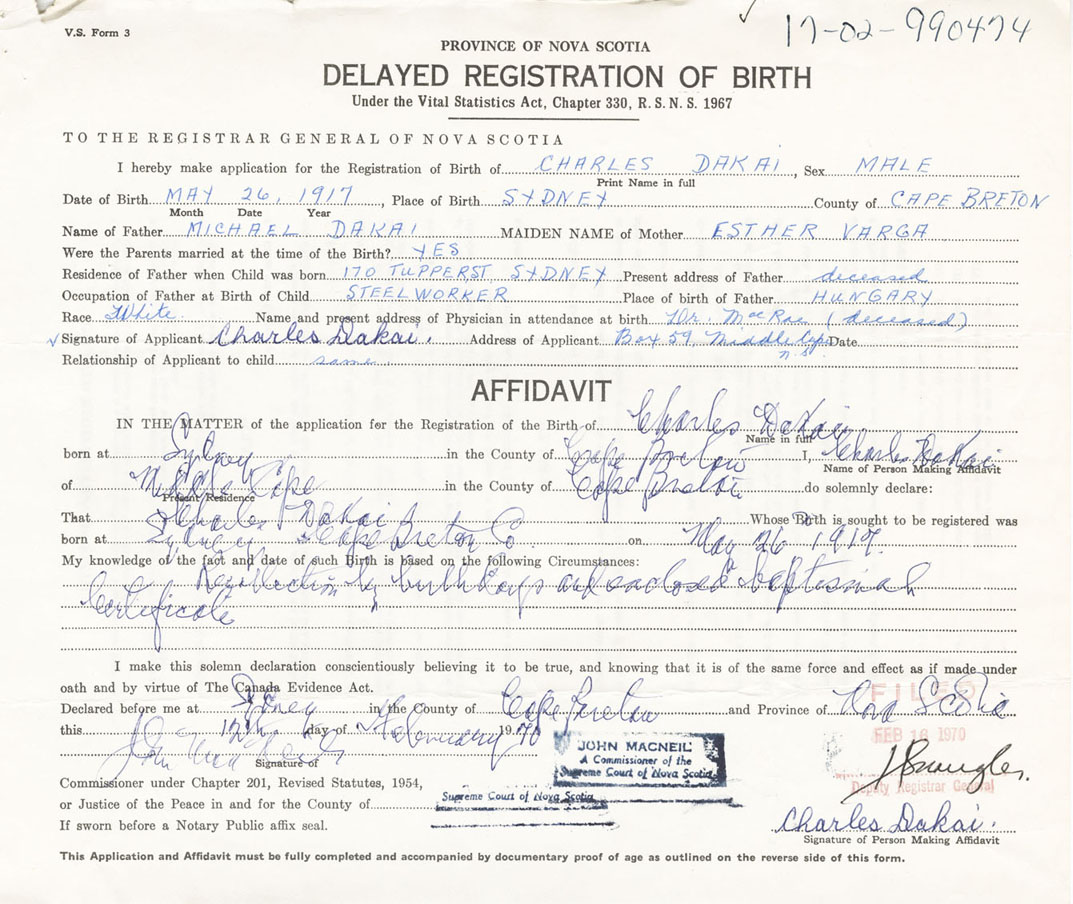 V.S. Form 3
17-02-990474
PROVINCE OF NOVA SCOTIA
DELAYED REGISTRATION OF BIRTH
Under the Vital Statistics Act, Chapter 330, R.S.N.S. 1967
TO THE REGISTRAR GENERAL OF NOVA SCOTIA
I hereby make application for the Registration of Birth of CHARLES DAKAI, Sex MALE
Print Name in full
Date of Birth MAY 26, 1917, Place of Birth SYDNEY County of CAPE BRETON
Month Date Year
Name of Father MICHAEL DAKAI MAIDEN NAME of Mother ESTHER VARGA
Were the Parents married at the time of the Birth? YES
Residence of Father when Child was born 170 TUPPER ST SYDNEY Present address of Father deceased
Occupation of Father at Birth of Child STEELWORKER Place of birth of Father HUNGARY
Race White Name and present address of Physician in attendance at birth Dr. MacRae (deceased)
Signature of Applicant Charles Dakai. Address of Applicant Box 59, Middle Cape Date
N.S.
Relationship of Applicant to child same
AFFIDAVIT
IN THE MATTER of the application for the Registration of the Birth of Charles Dakai
Name in full
born at Sydney in the County of Cape Breton I, Charles Dakai
Name of Person Making Affidavit
of Middle Cape in the County of Cape Breton do solemnly declare:
Present Residence
That Charles Dakai Whose Birth is sought to be registered was
born at Sydney Cape Breton Co on May 26 1917.
My knowledge of the fact and date of such Birth is based on the following Circumstances:
Recollection by birthdays and enclosed baptismal
Certificate
I make this solemn declaration conscientiously believing it to be true, and knowing that it is of the same force and effect as if made under
oath and by virtue of The Canada Evidence Act.
Declared before me at Sydney in the County of Cape Breton and Province of Nova Scotia
this 12th day of February 1970
FILED
FEB 16 1970
Deputy Registrar General
JOHN MACNEIL
A Commissioner of the
Supreme Court of Nova Scotia
Signature of
Commissioner under Chapter 201, Revised Statutes, 1954,
or Justice of the Peace in and for the County of
Supreme Court of Nova Scotia
If sworn before a Notary Public affix seal.
Charles Dakai.
Signature of Person Making Affidavit
This Application and Affidavit must be fully completed and accompanied by documentary proof of age as outlined on the reverse side of this form.